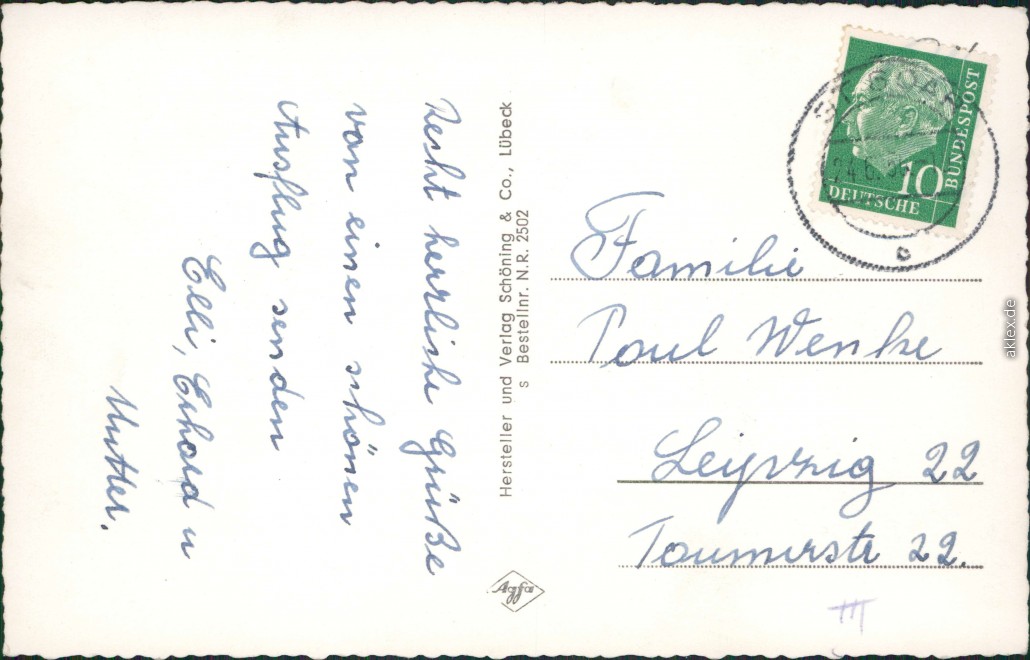 Recht herrliche Grüße
von einen schönen
Ausflug senden
Elli, Erhard u
Mutter.
Hersteller und Verlag Schöning & Co., Lübeck
s Bestellnr. N.R. 2502
Agfa
10
DEUTSCHE
BUNDESPOST
c
Familie
Paul Wenke
Leipzig 22
22.
aklex.de